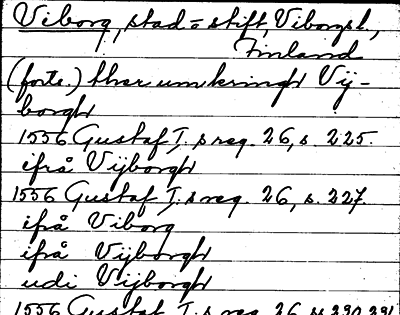 Viborg, stad = stift, Viborgsl.,
Finland
(forts.) ther umkringh Vij-
borgh
1556 Gustaf I. s reg. 26, s. 225.
ifrå Vijborgh
1556 Gustaf I. s reg. 26, s. 227.
ifrå Viborg
ifrå Vijborgh
udi Vijborgh
1556 Gustaf I. s reg. 26 ss 290, 291